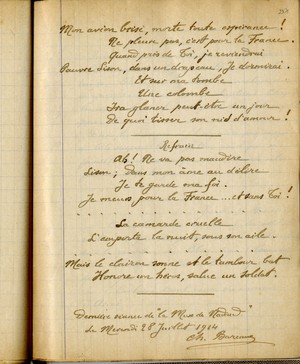 Mon avion brisé, morte toute espérance !
Ne pleure pas, c'est pour la France.
Quand près de Toi, je reviendrai
Pauvre Lison, dans un drapeau, Je dormirai.
Et sur ma tombe
Une colombe
Ira glaner peut-être un jour
De quoi tisser son nid d'amour !
Refrain
Ah ! Ne va pas maudire
Lison ; dans mon âme au délire
Je te garde ma foi.
Je meurs pour la France ... et sans Toi !
La camarde cruelle
L'emporte la nuit, sous son aile.
Mais le clairon sonne et le tambour bat
Honore un héros, salue un soldat.
Dernière séance de la
le Mercredi 28 Juillet 1914
Ch.